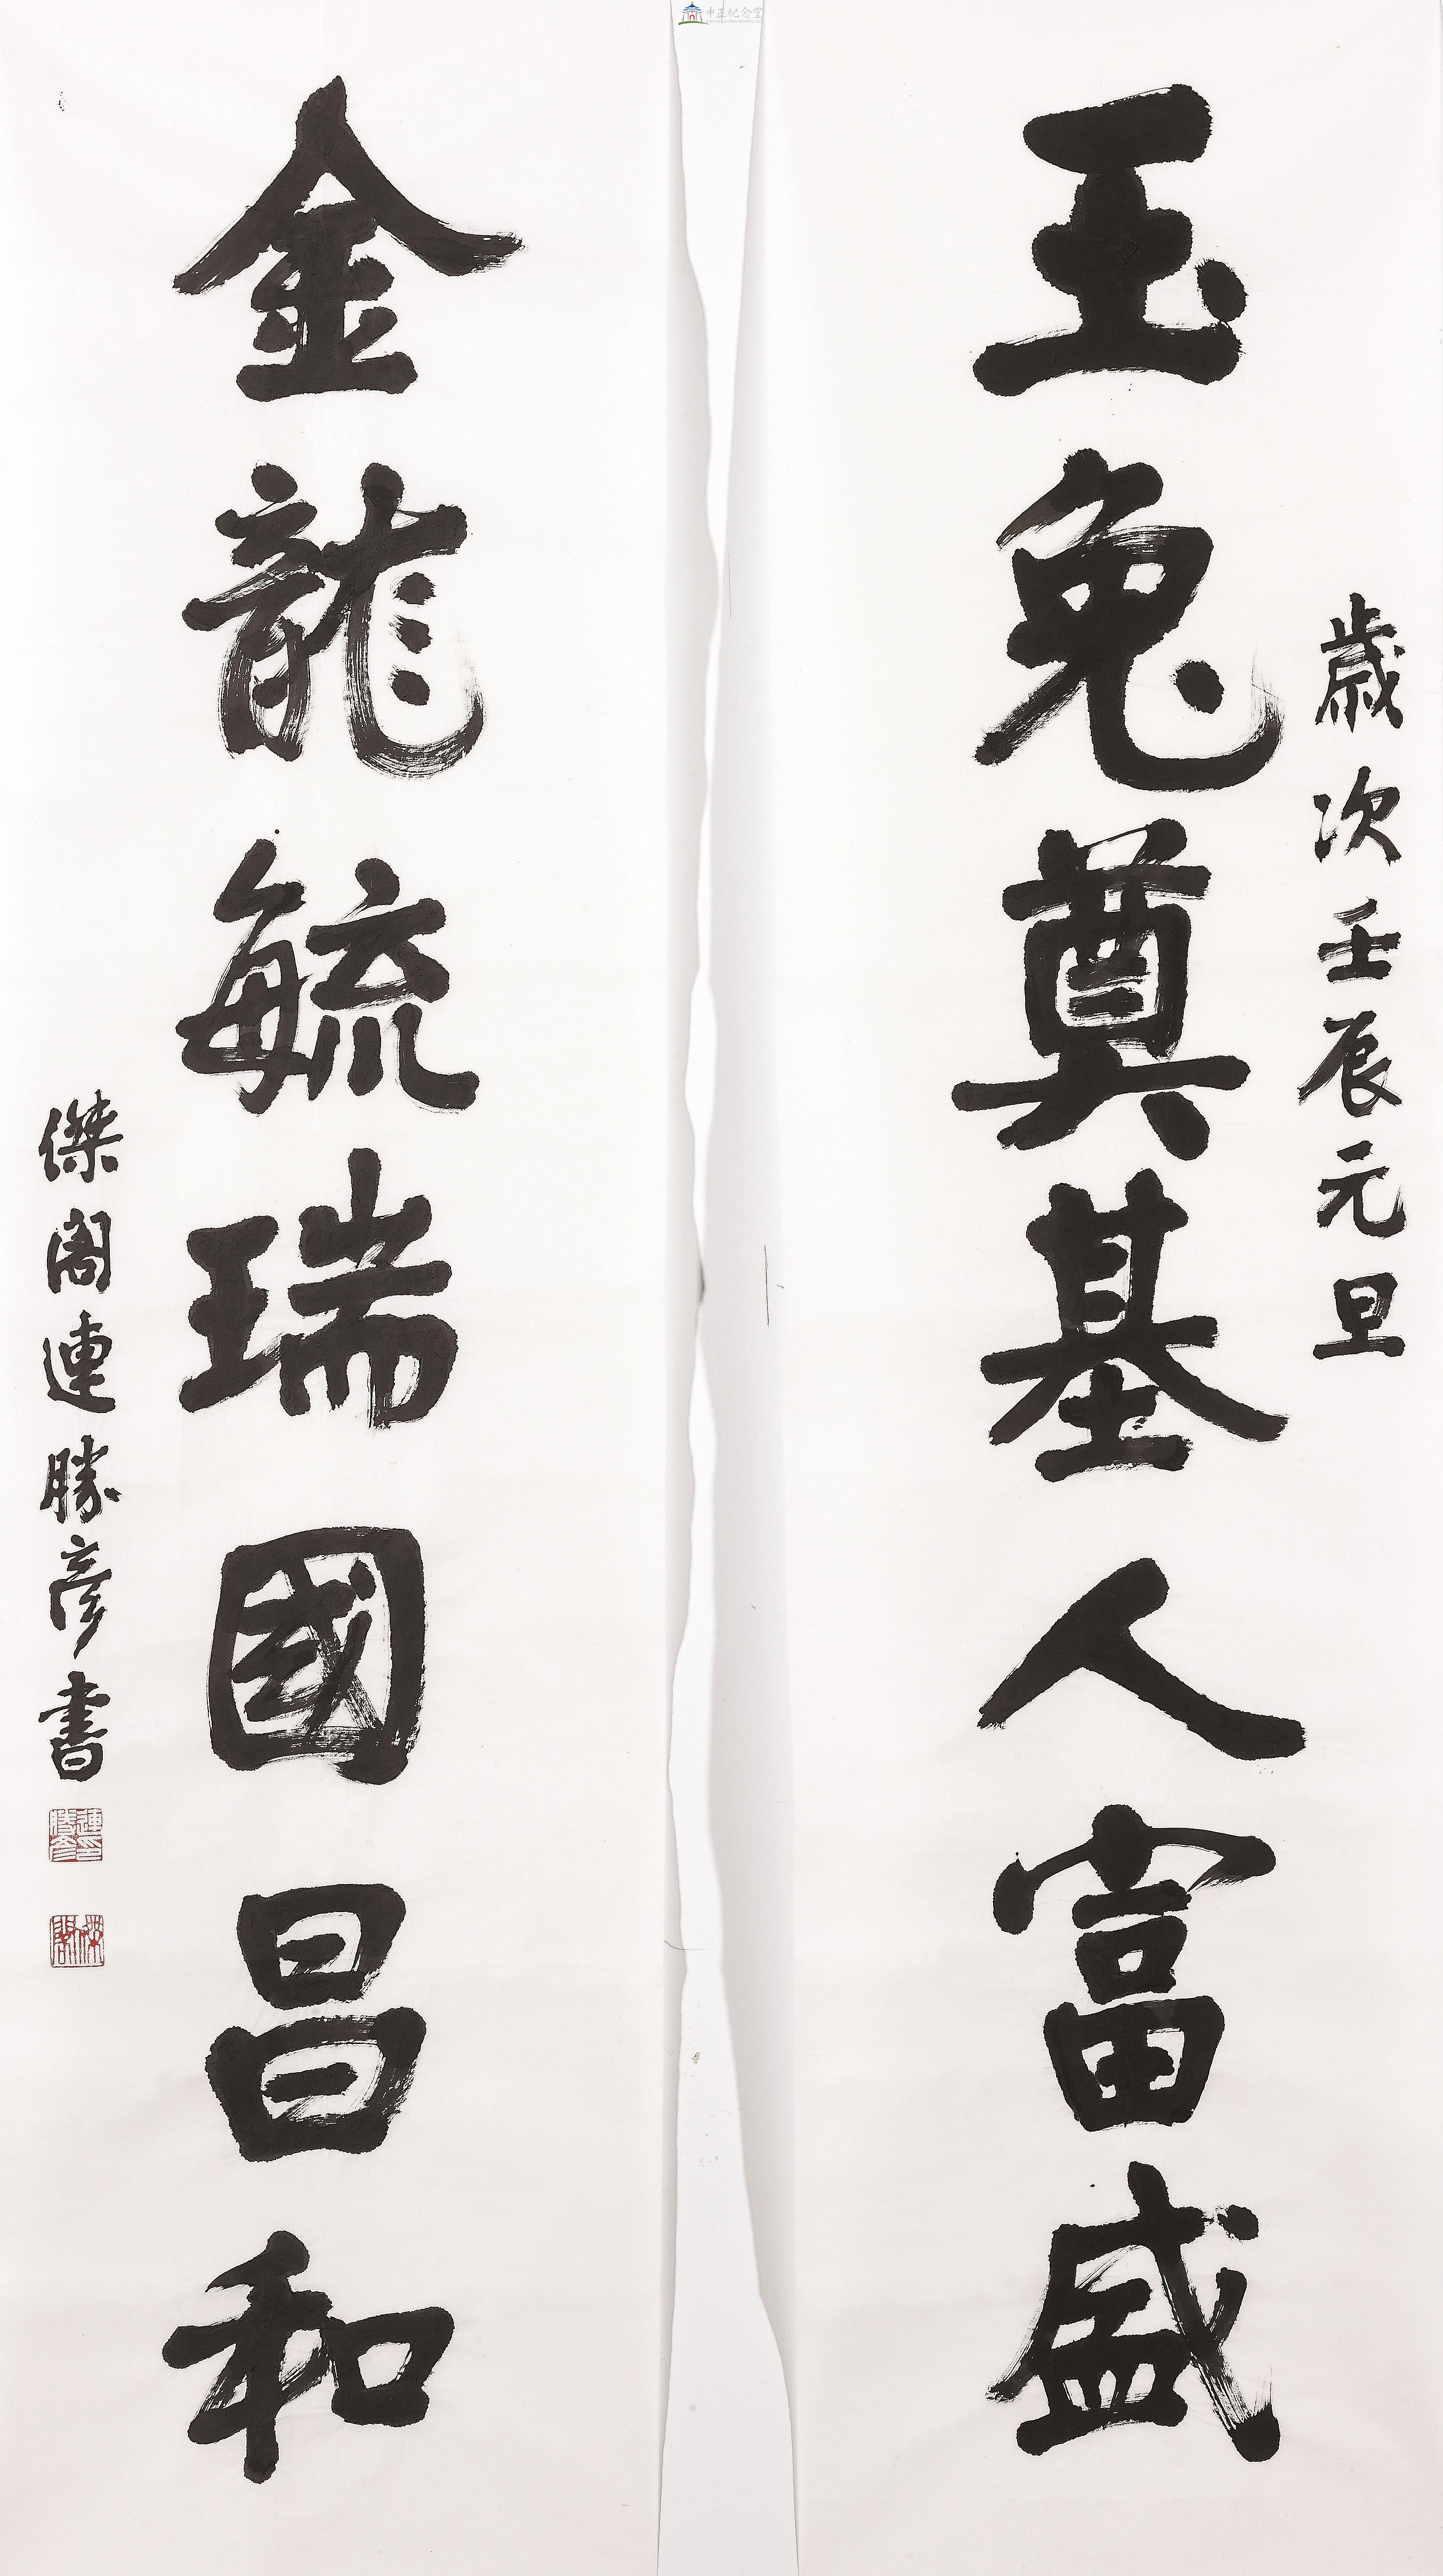 歲次壬辰元旦
玉兔奠基人富盛
金龍毓瑞國昌和
傑閣連勝彥書
連勝彥印
傑閣
中正紀念堂